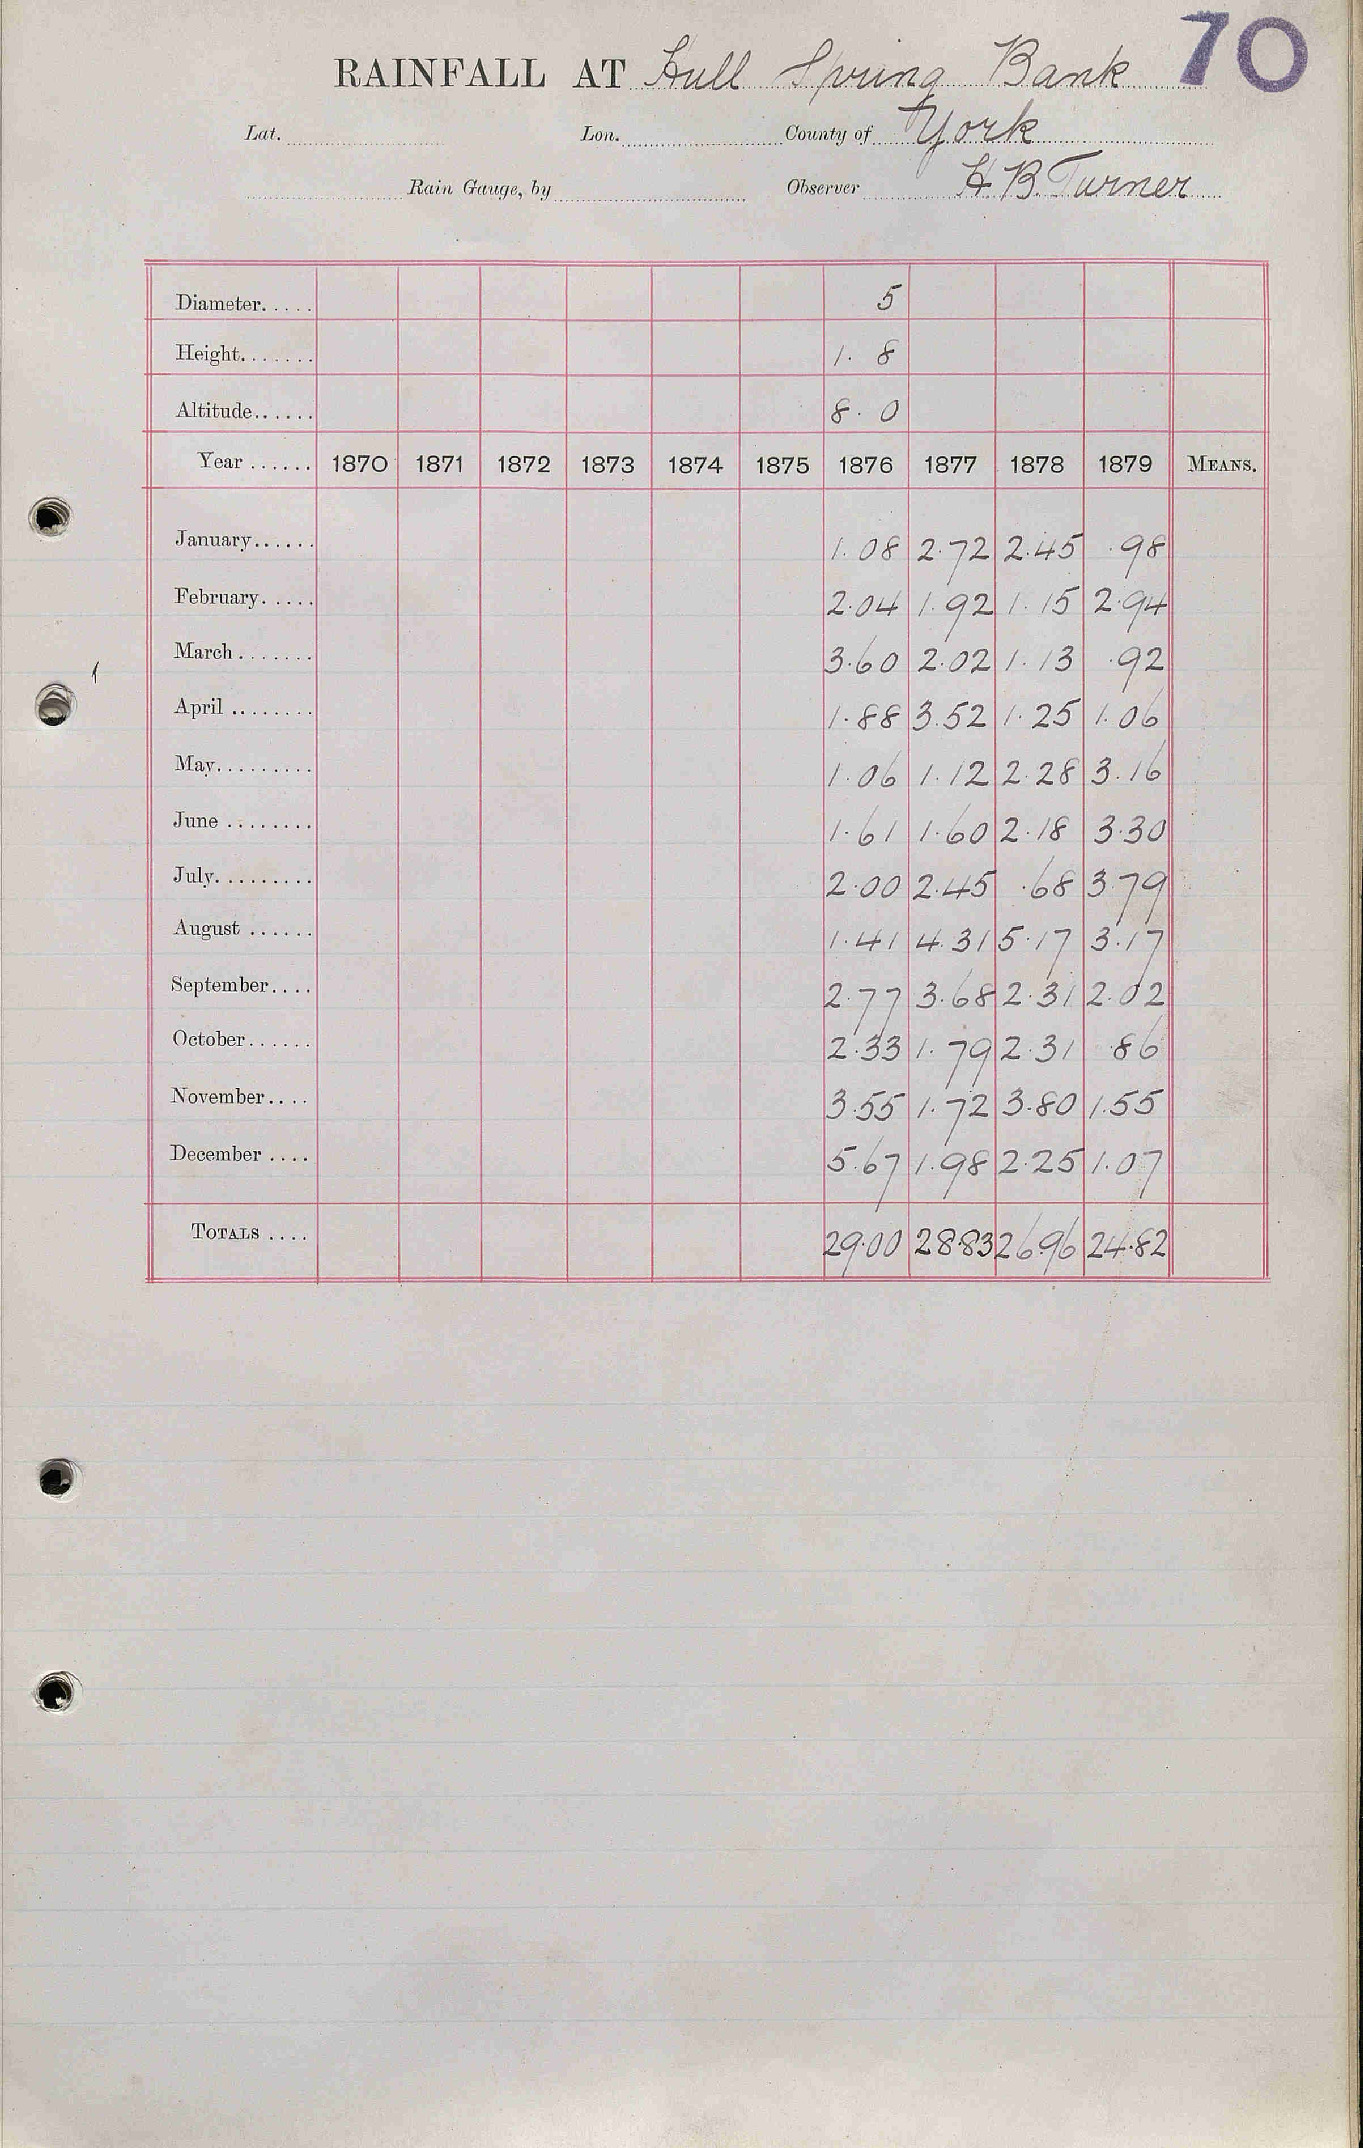 70
RAINFALL AT Hull Spring Bank
Lat. Lon. County of York
Rain Gauge, by Observer H B. Turner
Diameter..... 5
Height....... 1. 8
Altitude...... 8. 0
Year ...... 1870 1871 1872 1873 1874 1875 1876 1877 1878 1879 MEANS.
January...... 1.08 2.72 2.45 .98
February..... 2.04 1.92 1.15 2.94
March ....... 3.60 2.02 1.13 .92
April ........ 1.88 3.52 1.25 1.06
May......... 1.06 1.12 2.28 3.16
June ........ 1.61 1.60 2.18 3.30
July......... 2.00 2.45 .68 3.79
August ...... 1.41 4.31 5.17 3.17
September.... 2.77 3.68 2.31 2.02
October...... 2.33 1.79 2.31 .86
November.... 3.55 1.72 3.80 1.55
December .... 5.67 1.98 2.25 1.07
TOTALS .... 29.00 28.83 26.96 24.82